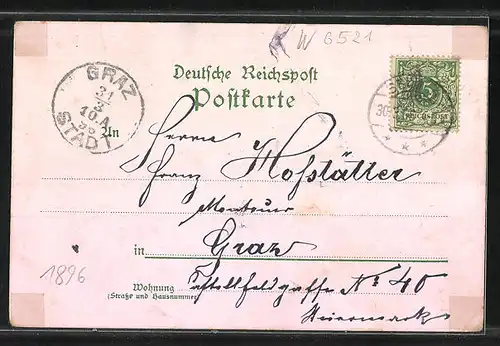 W 6521
Deutsche Reichspost
Postkarte
GRAZ
31
3
10.A
96
STADT
5
REICHSPOST
30
An
Herrn
Franz Hofstätter
Monteur
in Graz
1896
Wohnung
(Straße und Hausnummer)
No 40
Steiermark